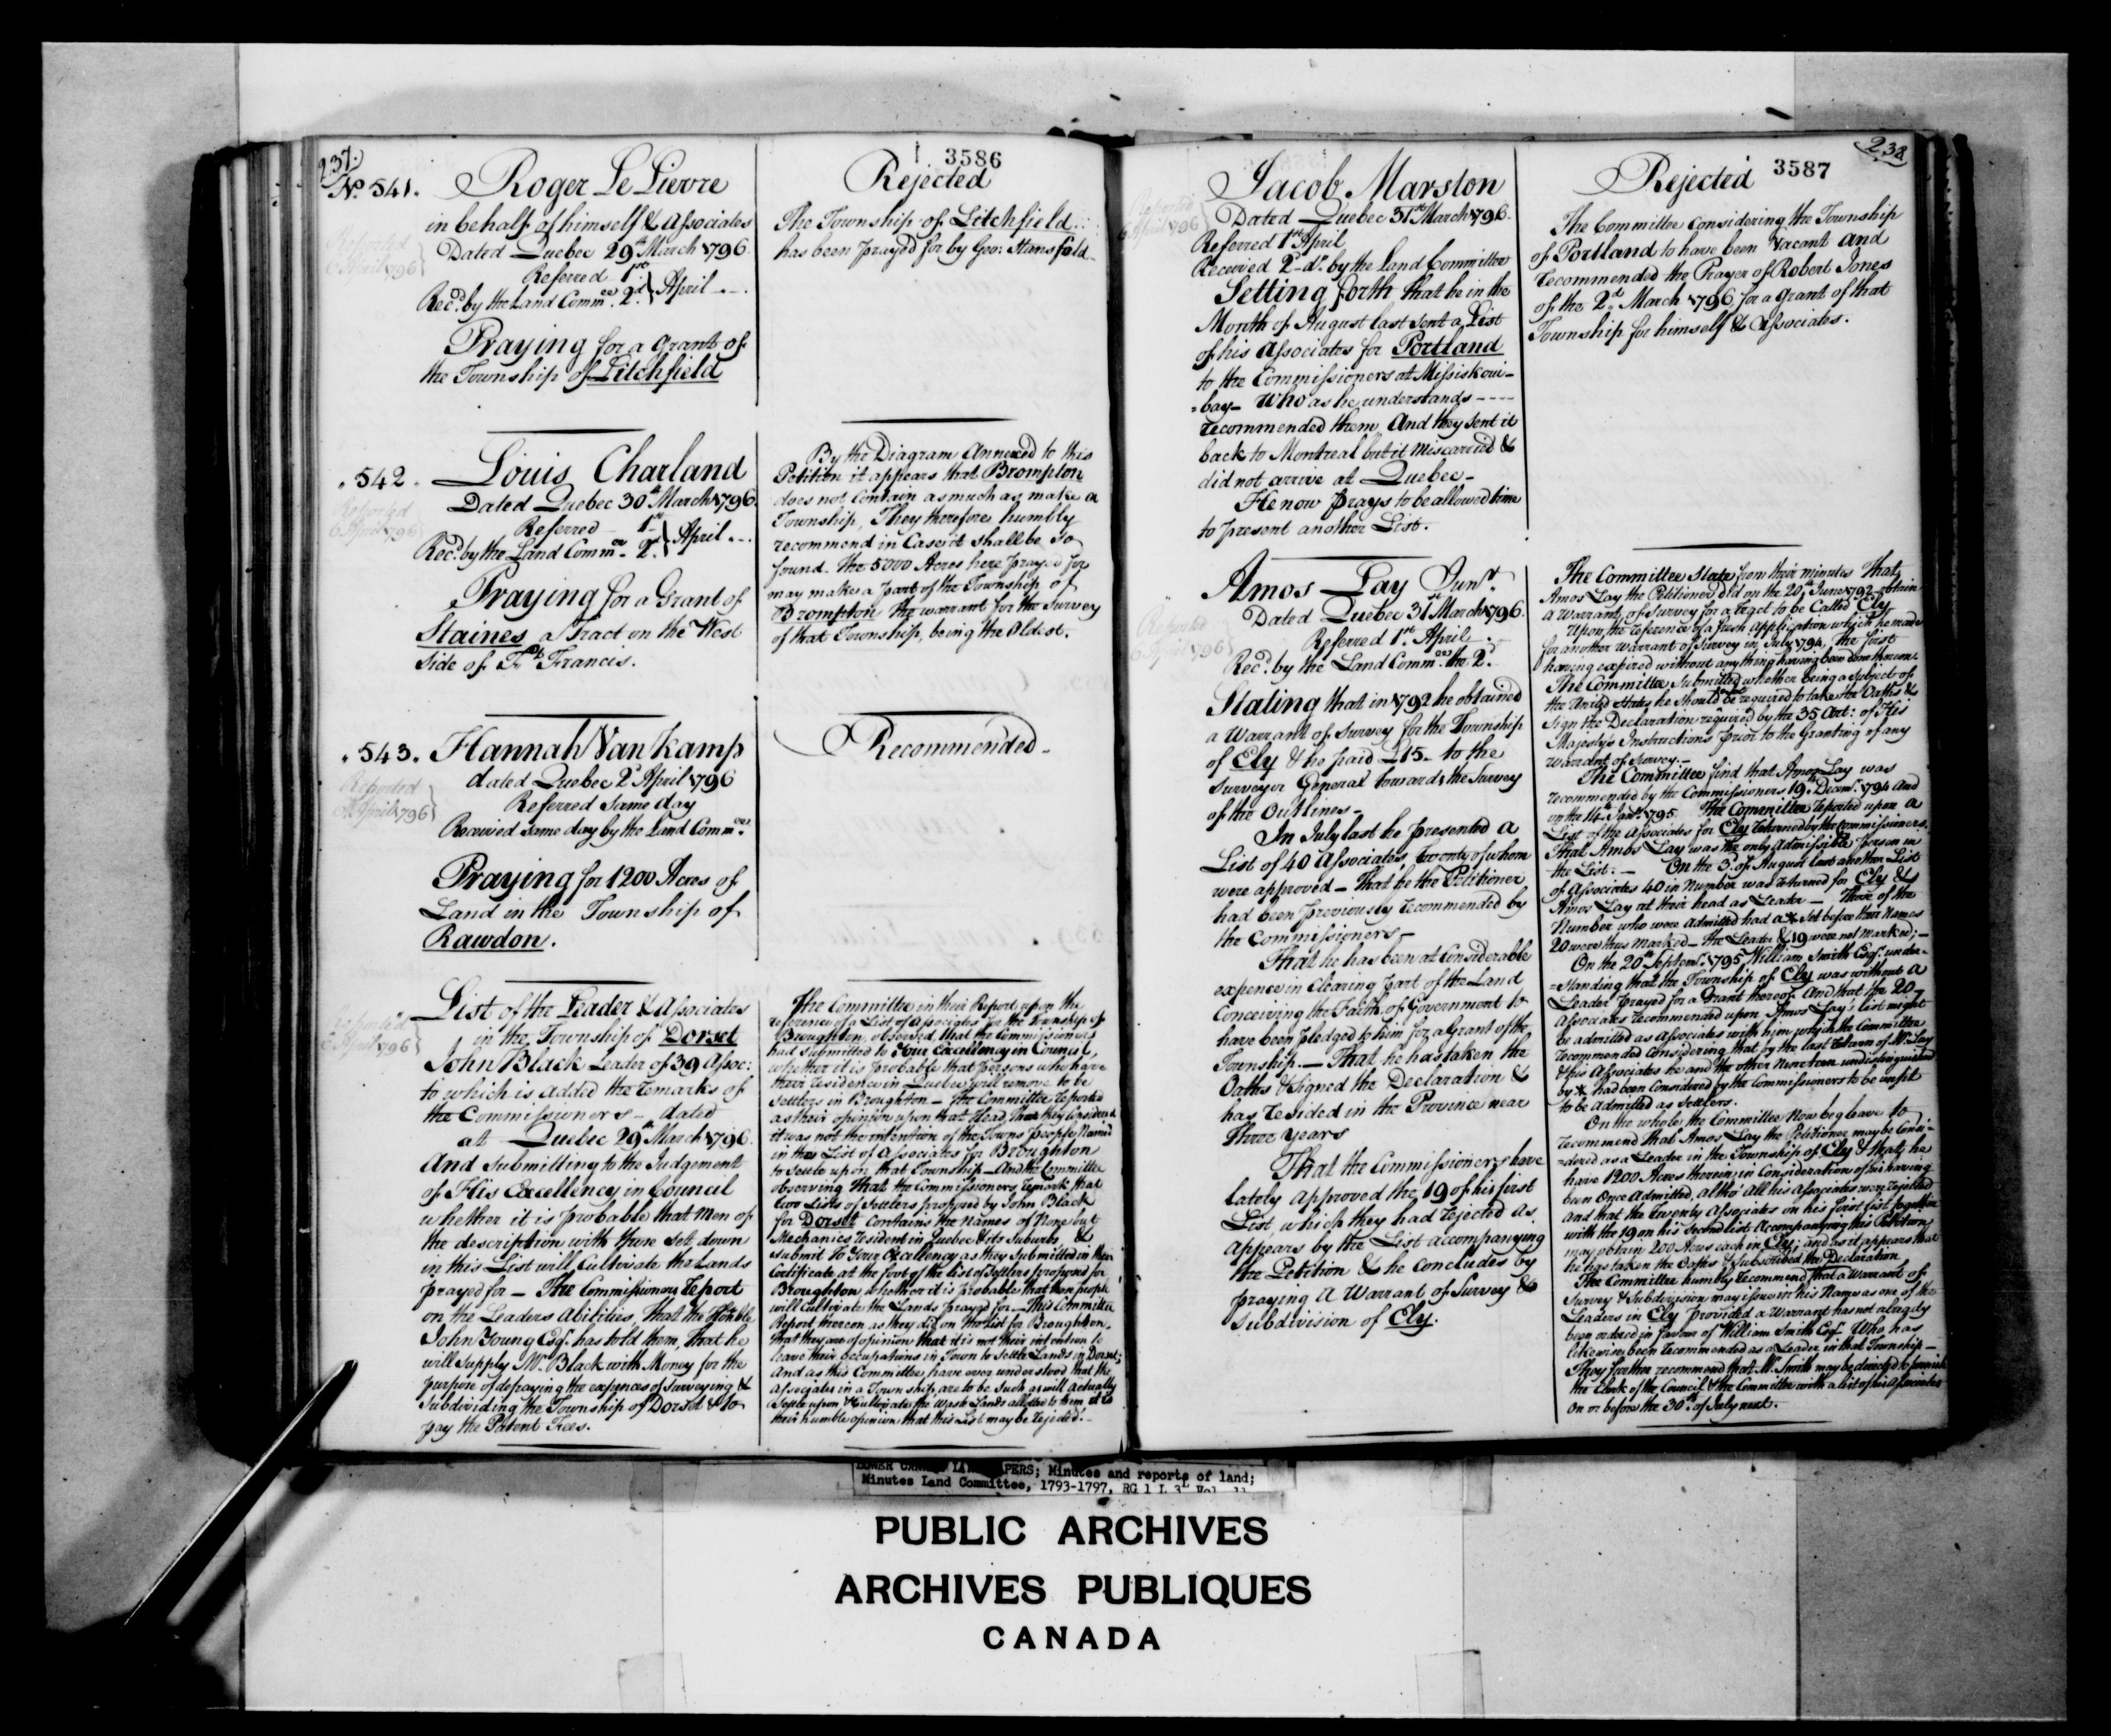 237.
3586
No. 541. Roger Le Lievre
in behalf of himself & Associates
Dated Quebec 29th March 1796.
Referred 1st
Recd. by the Land Commee. 2d. } April
Praying for a Grant of
the Township of Litchfield
Reported
April 1796
Rejected
The Township of Litchfield
has been prayed for by Geo: Stansfeld
" 542. Louis Charland
Dated Quebec 30th March 1796.
Referred 1st
Recd. by the Land Commee. 2d. } April
Praying for a Grant of
Staines a Tract on the West
Side of St. Francis.
Reported
6 April 1796
By the Diagram Annexed to this
Petition it appears that Brompton
does not contain as much as make a
Township, They therefore humbly
recommend in Case it shall be so
found. the 5000 Acres here prayed for
may make a part of the Township of
Brompton the warrant for the Survey
of that Township, being the Oldest.
" 543. Hannah Van Kamp
dated Quebec 2d April 1796
Referred same day
Received same day by the Land Commee.
Praying for 1200 Acres of
Land in the Township of
Rawdon.
Reported
April 1796
Recommended
List of the Leader & Associates
in the Township of Dorset
John Black Leader of 39 Assoc:
to which is added the remarks of
the Commissioners dated
at Quebec 29th March 1796.
And submitting to the Judgement
of His Excellency in Council
whether it is probable that men of
the description with those set down
in this List will Cultivate the Lands
prayed for — The Commissioners Report
on the Leaders Abilities, That the Honble
John Young Esqr. has told them, that he
will supply Mr. Black with Money for the
purpose of defraying the expences of surveying &
Subdividing the Township of Dorset & to
pay the Patent Fees.
Reported
April 1796
The Committee in their Report upon the
reference of a List of Associates for the Township of
Broughton, observed, that the Commissioners
had submitted to Your Excellency in Council,
whether it is probable that persons who have
their residence in Quebec will remove to be
settlers in Broughton — The Committee reported
as their opinion upon that Head, that they Considered
it was not the intention of the Towns people Named
in the List of Associates for Broughton
to settle upon that Township — And the Committee
observing that the Commissioners remark that
two Lists of Settlers proposed by John Black
for Dorset Contains the names of None but
Mechanics resident in Quebec & its Suburbs &
submit to Your Excellency as they submitted in their
Certificate at the foot of the list of Settlers proposed for
Broughton whether it is probable that such people
will cultivate the Lands prayed for — This Committee
Report thereon as they did on the list for Broughton,
that they are of opinion that it is not their intention to
leave their occupations in Town to Settle Lands in Dorset;
And as this Committee have ever understood that the
Associates in a Township, are to be such as will actually
Settle upon & Cultivate the waste Lands allotted to them it is
their humble opinion that this List may be rejected.
238
3587
Jacob Marston
Dated Quebec 31st March 1796.
Referred 1st April
Received 2d. do. by the Land Committee
Setting forth that he in the
Month of August last sent a List
of his Associates for Portland
to the Commissioners at Missiskoui-
=bay Who as he understands
recommended them, And they sent it
back to Montreal but it miscarried &
did not arrive at Quebec
He now prays to be allowed time
to present another List.
Reported
6 April 1796
Rejected
The Committee Considering the Township
of Portland to have been Vacant and
recommended the Prayer of Robert Jones
of the 2d. March 1796 for a Grant of that
Township for himself & Associates.
Amos Lay Junr.
Dated Quebec 31st March 1796.
Referred 1st April
Recd. by the Land Commee. the 2d.
Stating that in 1792 he obtained
a Warrant of Survey for the Township
of Ely & he paid £15. to the
Surveyor General towards the Survey
of the Outlines
In July last he presented a
List of 40 Associates twenty of whom
were approved — That he the Petitioner
had been previously recommended by
the Commissioners
That he has been at Considerable
expence in Clearing part of the Land
Conceiving the Faith of Government to
have been pledged to him for a Grant of the
Township. — That he has taken the
Oaths & Signed the Declaration &
has resided in the Province near
three years
That the Commissioners have
lately approved the 19 of his first
List, which they had rejected as
appears by the List accompanying
the Petition & he concludes by
praying a Warrant of Survey &
Subdivision of Ely.
Reported
6 April 1796
The Committee State from their minutes That
Amos Lay the Petitioner did on the 20th June 1792 obtain
a Warrant of survey for a tract to be Called Ely
Upon the reference of a fresh Application which he made
for another warrant of Survey in July 1794, the first
having expired without any thing having been done thereon
The Committee Submitted whether being a Subject of
the United States he should not be required to take the Oaths &
sign the Declaration required by the 35 Art: of His
Majesty's Instructions prior to the Granting of any
warrant of survey.
The Committee find that Amos Lay was
recommended by the Commissioners 19th Decemr. 1794 And
on the 14th Janry. 1795 The Committee reported upon a
List of the Associates for Ely returned by the Commissioners.
That Amos Lay was the only Admissible person in
the List. — On the 3d. of August last another List
of Associates 40 in Number was returned for Ely &
Amos Lay at their head as Leader — Those of the
Number who were admitted had a * set before their Names
20 were thus marked — the Leader & 19 were not marked;
On the 20th Septemr. 1795 William Smith Esqr. under-
=standing that the Township of Ely was without a
Leader prayed for a Grant thereof And that the 20
Associates recommended upon Amos Lay's list might
be admitted as Associates with him which the Committee
recommended considering that by the last return of Mr. Lay
& his Associates he and the other Nineteen undistinguished
by * had been Considered by the Commissioners to be unfit
to be admitted as settlers.
On the whole the Committee Now beg leave to
recommend that Amos Lay the Petitioner may be Consi-
=dered as a Leader in the Township of Ely & that he
have 1200 Acres therein in Consideration of his having
been Once Admitted, altho' all his Associates were rejected
and that the Twenty Associates on his first list together
with the 19 on his second list Accompanying his Petition
may obtain 200 Acres each in Ely; and as it appears that
he has taken the Oaths & Subscribed the Declaration
The Committee humbly recommend that a Warrant of
Survey & Subdivision may issue in his Name as one of the
Leaders in Ely provided a Warrant has not already
been ordered in favour of William Smith Esqr. Who has
likewise been recommended as a Leader in that Township —
They further recommend that Mr. Smith may be directed to furnish
the Clerk of the Council & the Committee with a list of his Associates
On or before the 30th of July next.
LOWER CANADA LAND PAPERS; Minutes and reports of land;
Minutes Land Committee, 1793-1797, RG 1 L 3L Vol.
PUBLIC ARCHIVES
ARCHIVES PUBLIQUES
CANADA